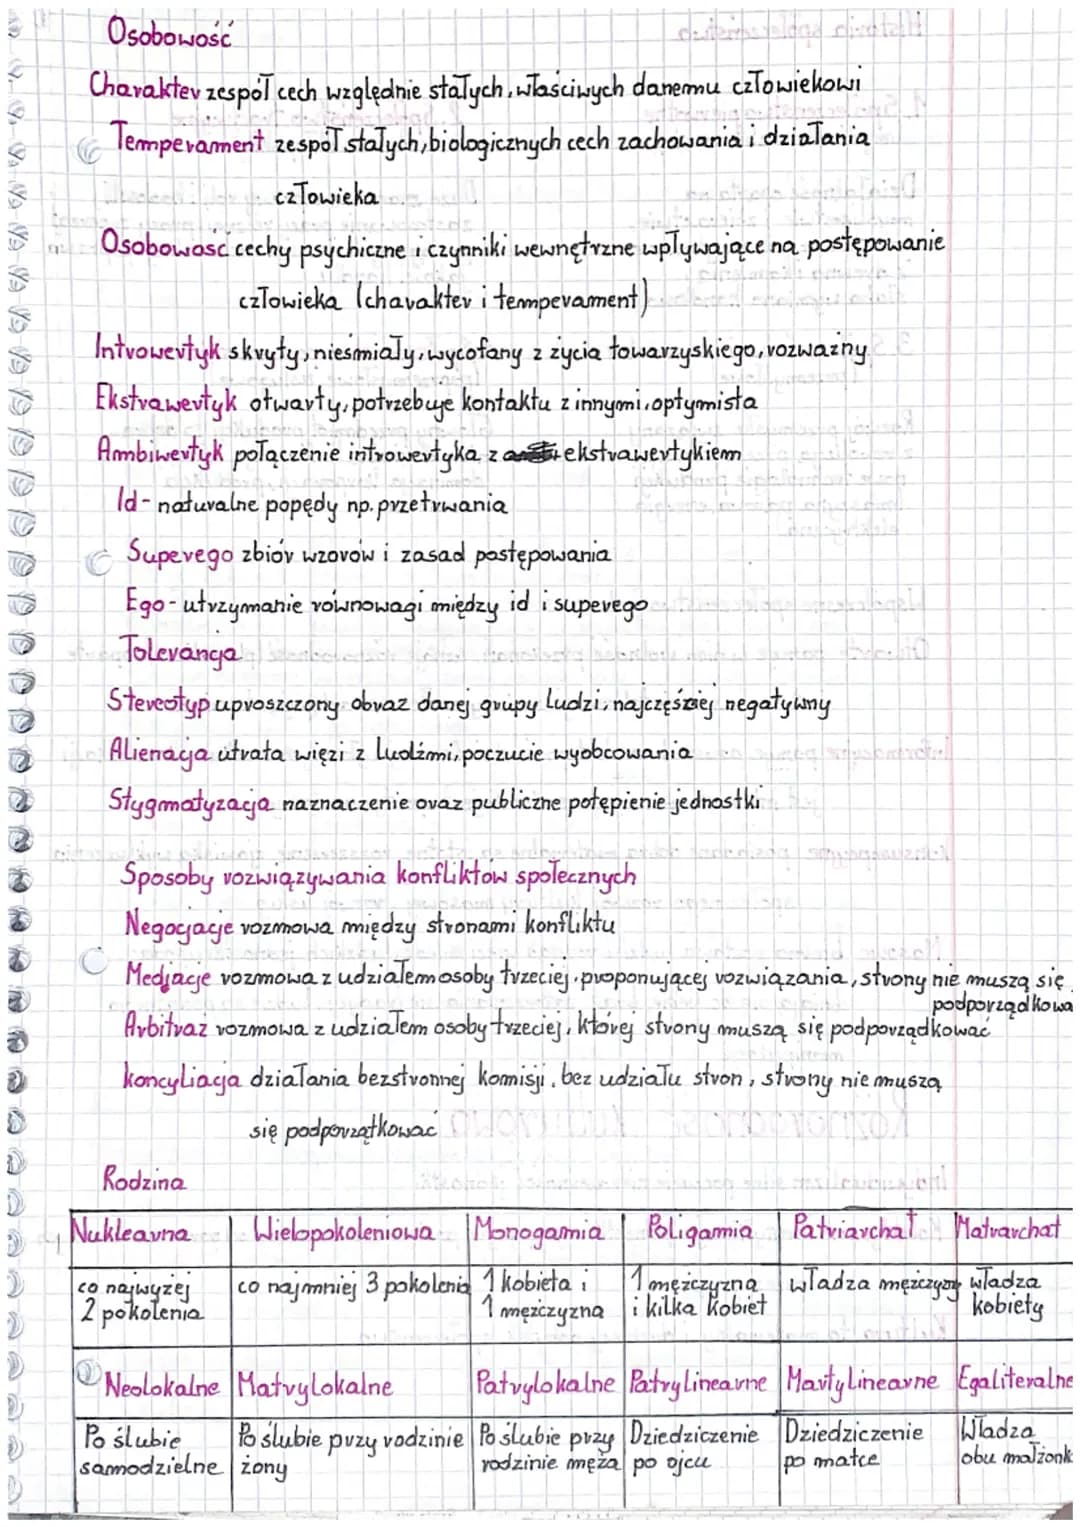 Osobowość
Charakter zespół cech względnie stałych, właściwych danemu człowiekowi
Temperament zespół stałych, biologicznych cech zachowania i działania
człowieka
Osobowość cechy psychiczne i czynniki wewnętrzne wpływające na postępowanie
człowieka (charakter i temperament)
Introwertyk skryty, nieśmiały, wycofany z życia towarzyskiego, rozważny
Ekstrawertyk otwarty, potrzebuje kontaktu z innymi, optymista
Ambiwertyk połączenie introwertyka z ekstrawertykiem
Id - naturalne popędy np. przetrwania
Superego zbiór wzorów i zasad postępowania
Ego - utrzymanie równowagi między id i superego
Tolerancja
Stereotyp uproszczony obraz danej grupy ludzi, najczęściej negatywny
Alienacja utrata więzi z ludźmi, poczucie wyobcowania
Stygmatyzacja naznaczenie oraz publiczne potępienie jednostki
Sposoby rozwiązywania konfliktów społecznych
Negocjacje rozmowa między stronami konfliktu
Mediacje rozmowa z udziałem osoby trzeciej, proponującej rozwiązania, strony nie muszą się
podporządkowa
Arbitraż rozmowa z udziałem osoby trzeciej, której strony muszą się podporządkować
koncyliacja działania bezstronnej komisji, bez udziału stron, strony nie muszą
się podporzątkować
Rodzina
Nuklearna Wielopokoleniowa Monogamia Poligamia Patriarchat Matrarchat
co najwyżej co najmniej 3 pokolenia 1 kobieta i 1 mężczyzna władza mężczyzn władza
2 pokolenia 1 mężczyzna i kilka kobiet kobiety
Neolokalne Matrylokalne Patrylokalne Patrylinearne Martylinearne Egaliteralne
Po ślubie Po ślubie przy rodzinie Po ślubie przy Dziedziczenie Dziedziczenie Władza
samodzielne żony rodzinie męża po ojcu po matce obu małżonk